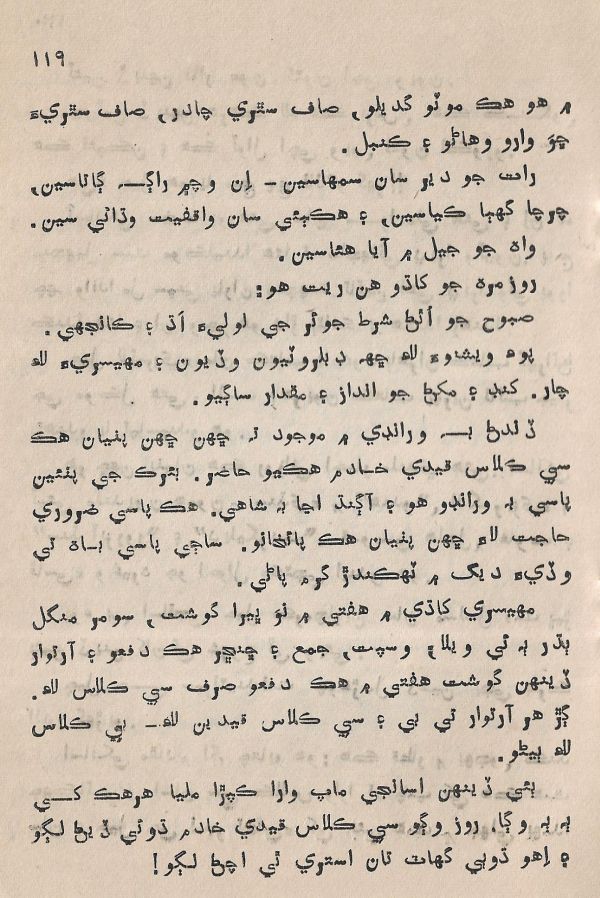 ١١٩
۾ هو هڪ موٽو گديلو، صاف سٿري چادر، صاف سٿريءَ
ڇوَ وارو وهاڻو ۽ ڪنبل.
رات جو دير سان سمهياسين – اِن وچ ۾ راڳ ڳاتاسين،
چرچا گهڻا ڪياسين، ۽ هڪٻئي سان واقفيت وڌائي سين.
واه جو جيل ۾ آيا هئاسين.
روزمره جو کاڌو هن ريت هو:
صبوح جو اُٿڻ شرط جوئر جي لوليءَ اَڌ ۽ ڪانجهي.
پوءِ ويشنوءَ لاءِ ڇهه ڊبلروٽيون وڏيون ۽ مهيسريءَ لاءِ
چار. کنڊ ۽ مکڻ جو انداز ۽ مقدار ساڳيو.
ڏندڻ به ورانڊي ۾ موجود ته ڇهن ڇهن ڀتيان هڪ
سي ڪلاس قيدي خادم هڪيو حاضر. بئرڪ جي پٺئين
پاسي به ورانڊو هو ۽ آڳنڌ اڃا به شاهي. هڪ پاسي ضروري
حاجت لاءِ ڇهن ڀتيان هڪ پائخانو. ساڄي پاسي باھ تي
وڏيءَ ديگ ۾ ٽهڪندڙ گرم پاڻي.
مهيسري کاڌي ۾ هفتي ۾ نوَ ڀيرا گوشت، سومر منگل
ٻڌر ٻه ئي ويلا، وسپت، جمع ۽ ڇنڇر هڪ دفعو ۽ آرتوار
ڏينهن گوشت هفتي ۾ هڪ دفعو صرف سي ڪلاس لاءِ.
ڳڙ هر آرتوار تي بي ۽ سي ڪلاس قيدين لاءِ – بي ڪلاس
لاءِ ٻيڻو.
ٻئي ڏينهن اسانجي ماپ وارا ڪپڙا مليا هرهڪ کي
ٻه ٻه وڳا. روز وڳو سي ڪلاس قيدي خادم ڌوئي ڏيڻ لڳو
۽ اِهو ڌوٻي گهاٽ تان استري ٿي اچڻ لڳو!